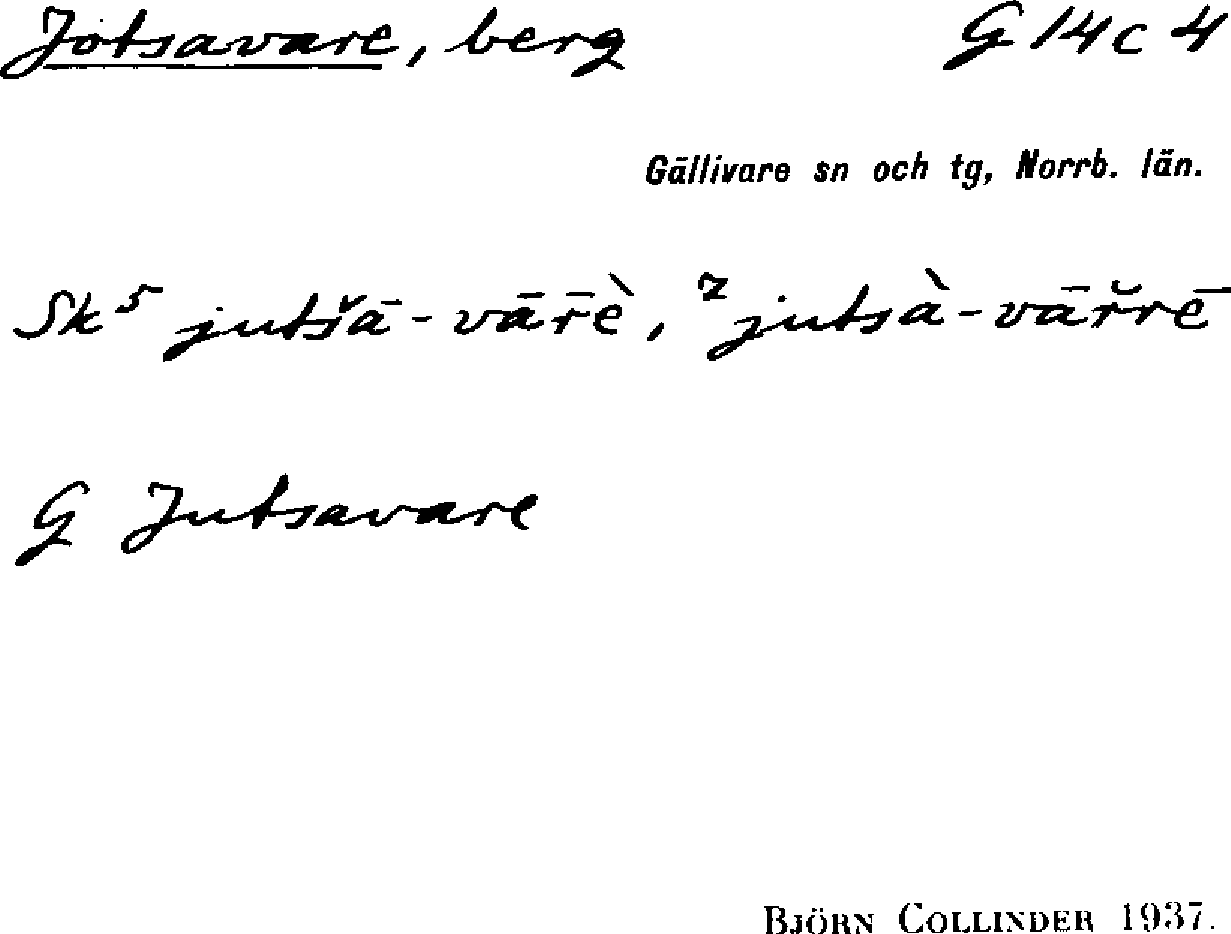 Jotsavare, berg G 14 c 4
Gällivare sn och tg, Norrb. län.
Sk⁵ jutšā-vār̄ḕ, ² jutsà-vār̆rē
G Jutsavare
BJÖRN COLLINDER 1937.